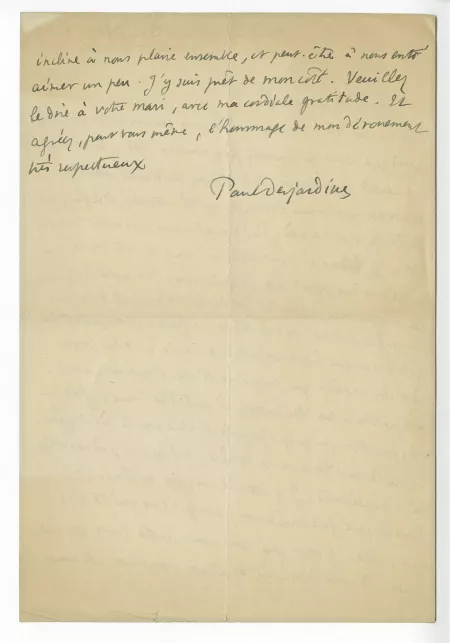 incline à nous plaire ensemble, et peut-être à nous entr'
aimer un peu. J'y suis prêt de mon côté. Veuillez
le dire à votre mari, avec ma cordiale gratitude. Et
agréez, pour vous même, l'hommage de mon dévouement
très respectueux
Paul Desjardins